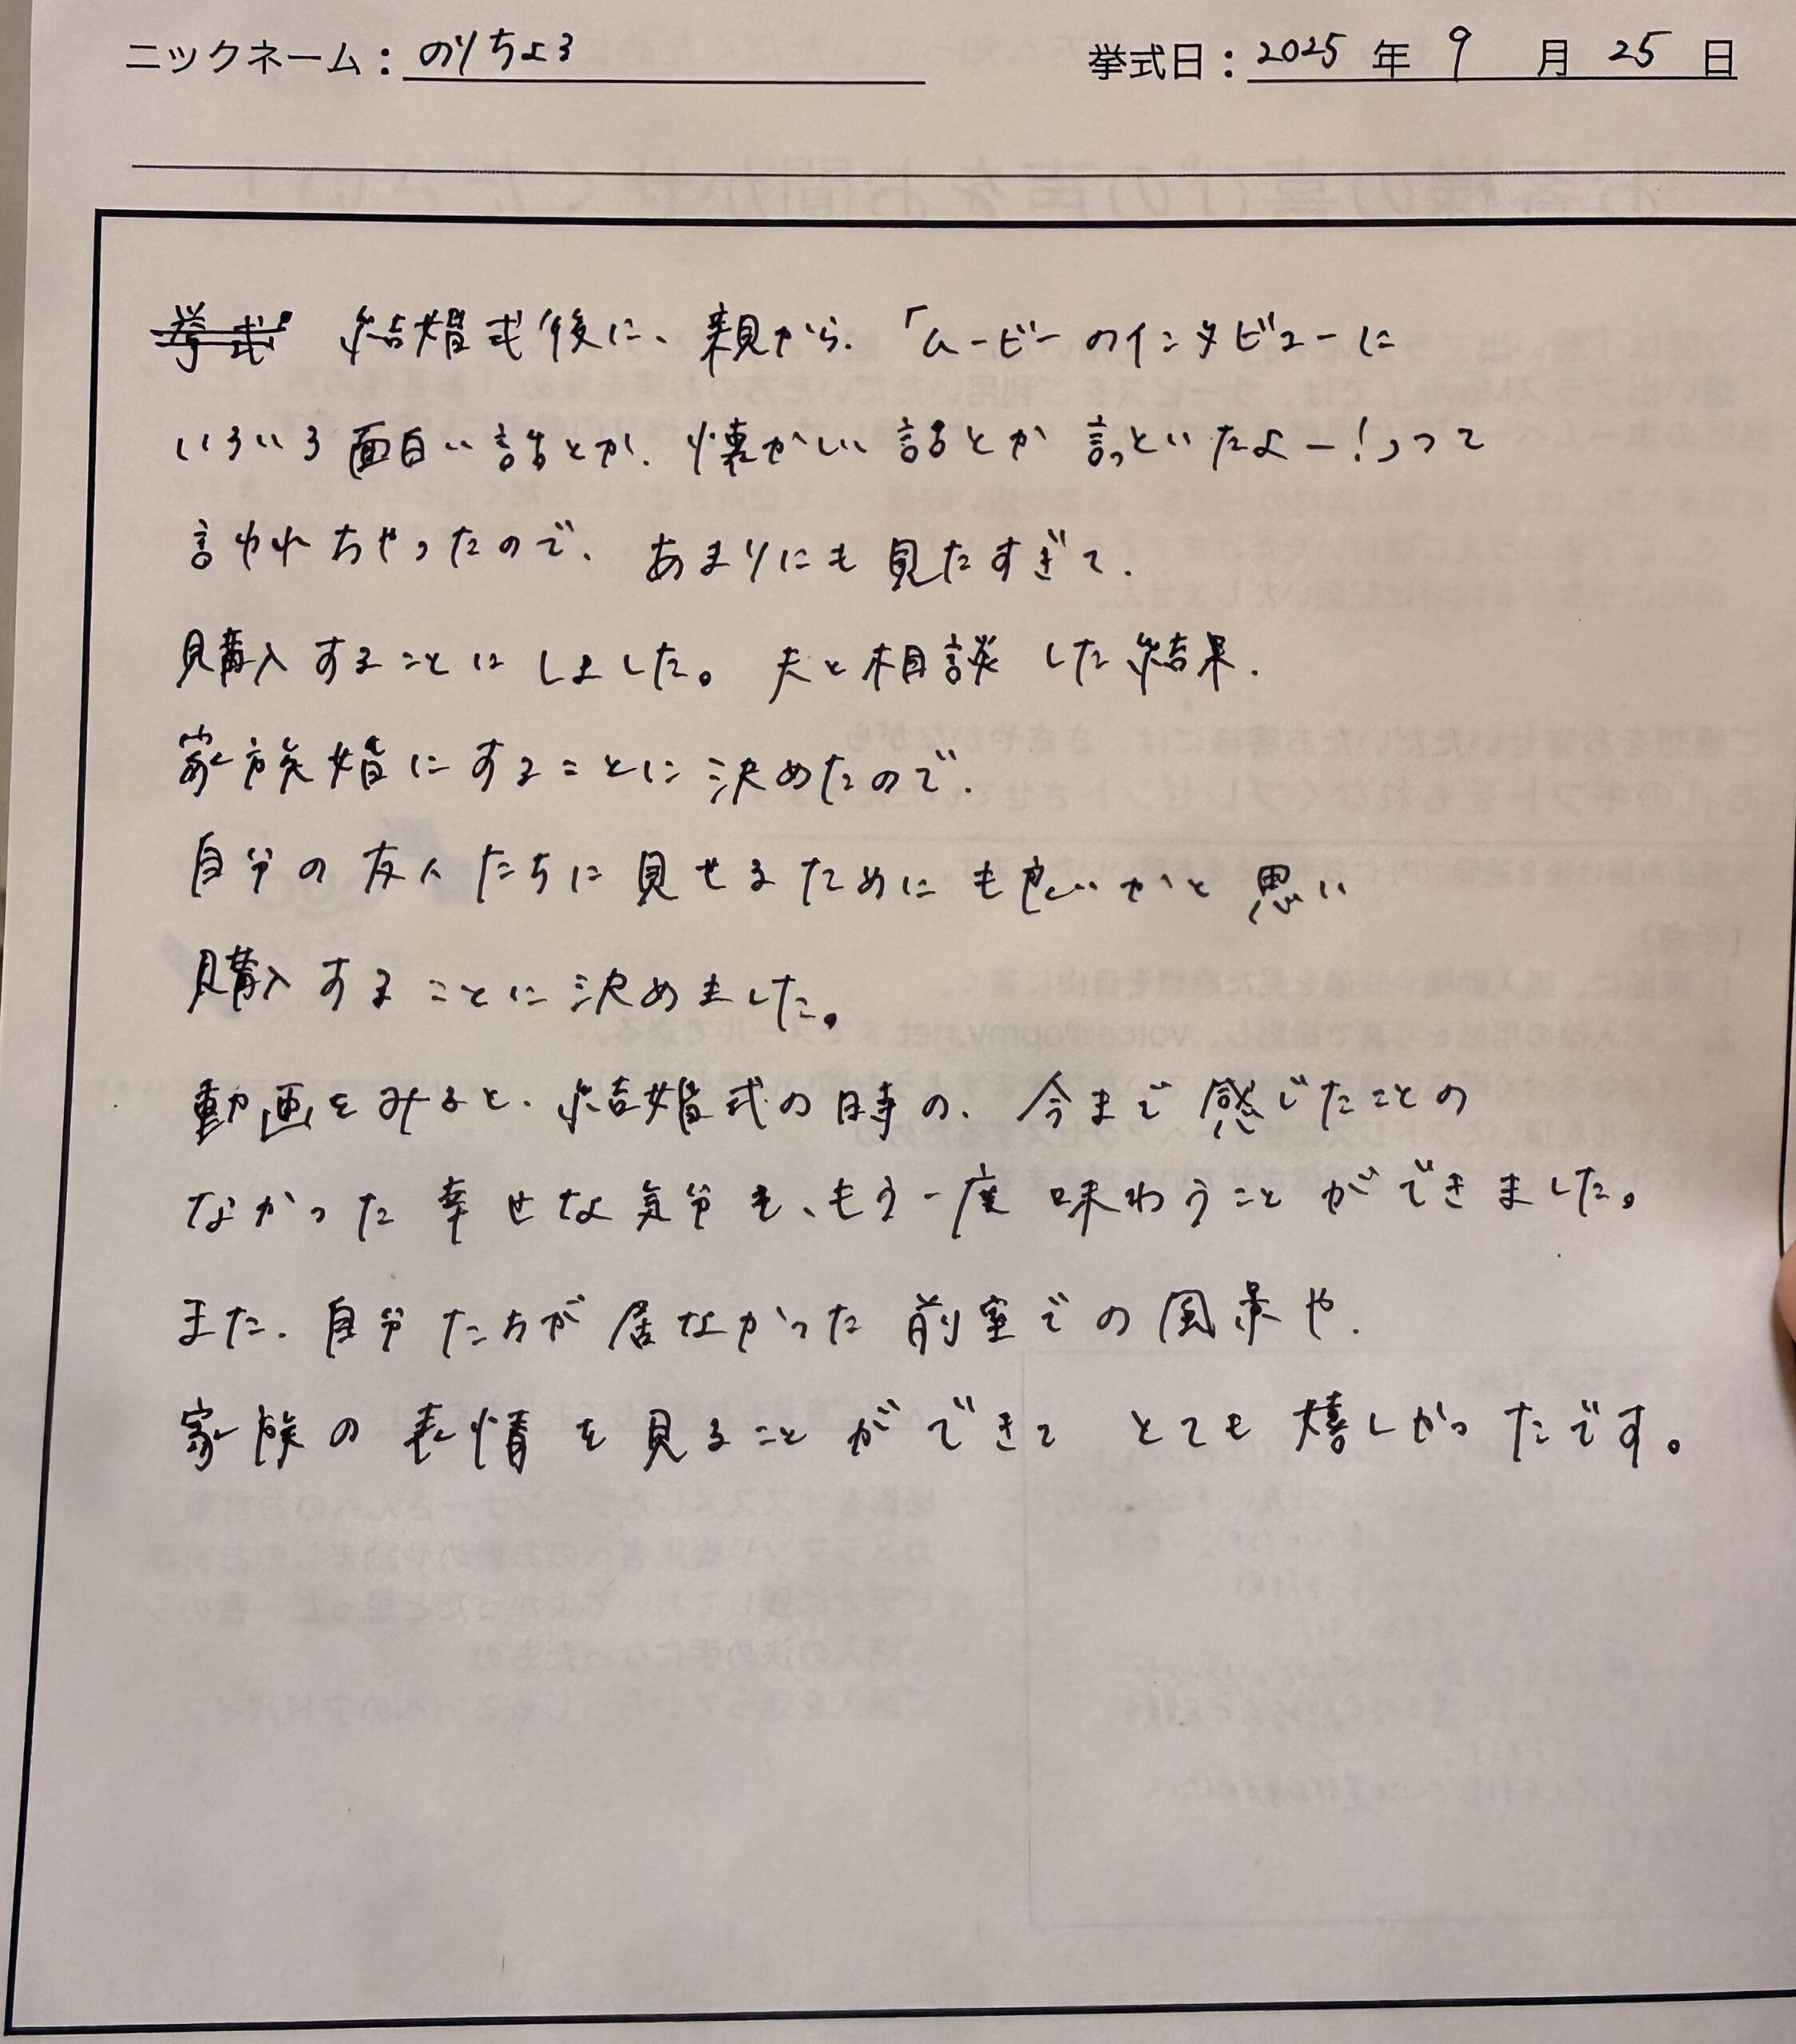 ニックネーム：のりちょろ 挙式日：2025年9月25日
挙式 結婚式後に、親から、「ムービーのインタビューに
いろいろ面白い話とか、懐かしい話とか言っといたよー！」って
言われちゃったので、あまりにも見たすぎて、
購入することにしました。夫と相談した結果、
家族婚にすることに決めたので、
自分の友人たちに見せるためにも良いかと思い
購入することに決めました。
動画をみると、結婚式の時の、今まで感じたことの
なかった幸せな気分を、もう一度味わうことができました。
また、自分たちが居なかった前室での風景や、
家族の表情を見ることができてとても嬉しかったです。